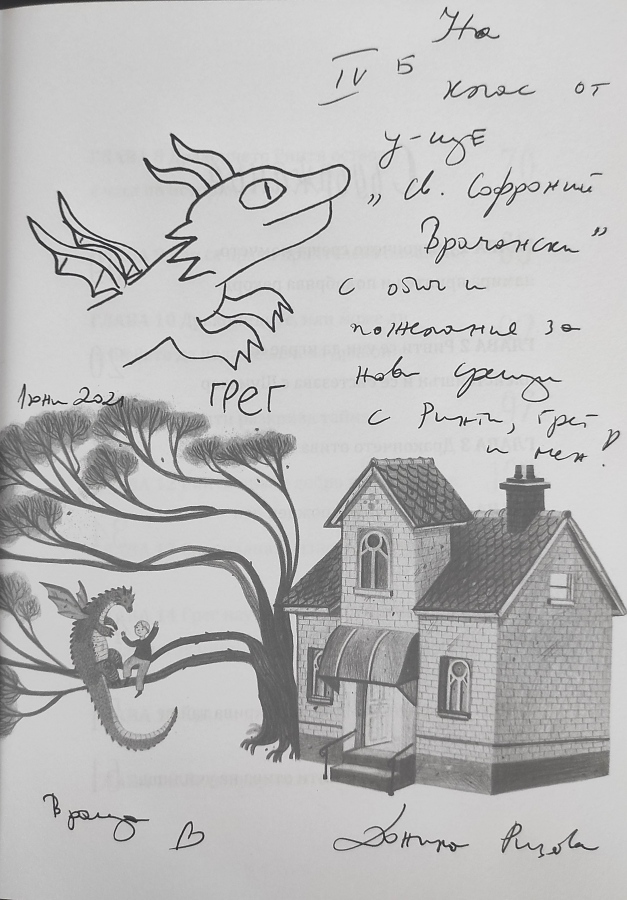 На
IV Б
клас от
у-ще
„Св. Софроний
Врачански"
с обич и
пожелание за
нови срещи
с Ринти, Грег
и мен!
ГРЕГ
Юни 2021
Враца
Ризова